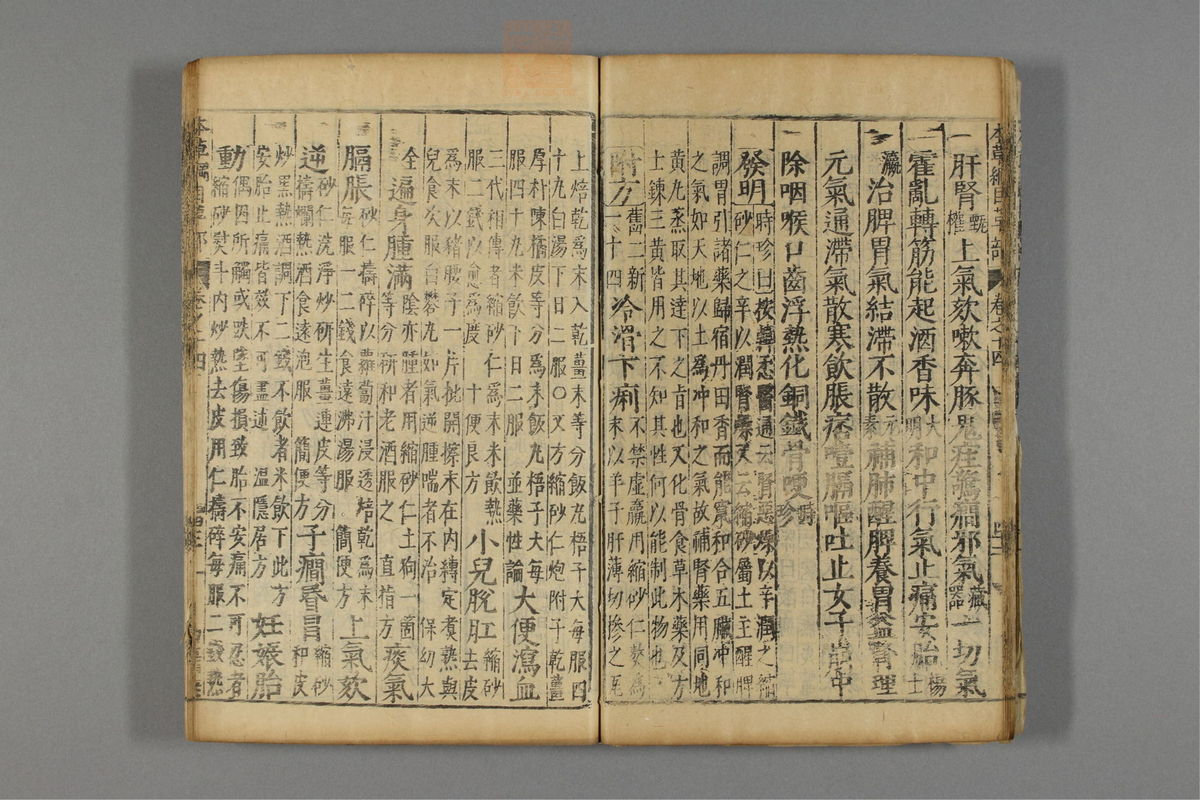 本草綱目草部 卷之十四
肝腎甄權上氣欬嗽奔豚鬼疰驚癇邪氣藏器一切氣
霍亂轉筋能起酒香味大明和中行氣止痛安胎楊士
瀛治脾胃氣結滯不散元素補肺醒脾養胃益腎理
元氣通滯氣散寒飲脹痞噎膈嘔吐止女子崩中
除咽喉口齒浮熱化銅鐵骨哽時珍
發明時珍曰按韓𢘅醫通云腎惡燥以辛潤之縮
砂仁之辛以潤腎燥又云縮砂屬土主醒脾
調胃引諸藥歸宿丹田香而能竄和合五臟冲和
之氣如天地以土爲冲和之氣故補腎藥用同地
黄丸蒸取其達下之旨也又化骨食草木藥及方
士鍊三黄皆用之不知其性何以能制此物也
附方舊二新一十四冷滑下痢不禁虚羸用縮砂仁熬爲
末以羊子肝薄切摻之瓦
上焙乾爲末入乾薑末等分飯丸梧子大每服四
十丸白湯下日二服〇又方縮砂仁炮附子乾薑
厚朴陳橘皮等分爲末飯丸梧子大每
服四十丸米飲下日二服 並藥性論大便瀉血
三代相傳者縮砂仁爲末米飲熱
服二錢以愈爲度 十便良方小兒脫肛縮砂
去皮
爲末以猪腰子一片批開擦末在內縛定煮熟與
兒食次服白礬丸如氣逆腫喘者不治 保幼大
全遍身腫滿陰亦腫者用縮砂仁土狗一箇
等分研和老酒服之 直指方痰氣
膈脹砂仁擣碎以蘿蔔汁浸透焙乾爲末
每服一二錢食遠沸湯服 簡便方上氣欬
逆砂仁洗淨炒研生薑連皮等分
擣爛熱酒食遠泡服 簡便方子癇昏冒縮砂
和皮
炒黑熱酒調下二錢不飲者米飲下此方
安胎止痛皆效不可盡述 溫隱居方妊娠胎
動偶因所觸或跌墜傷損致胎不安痛不可忍者
縮砂熨斗內炒熱去皮用仁擣碎每服二錢熱
本草綱目草部 卷之十四